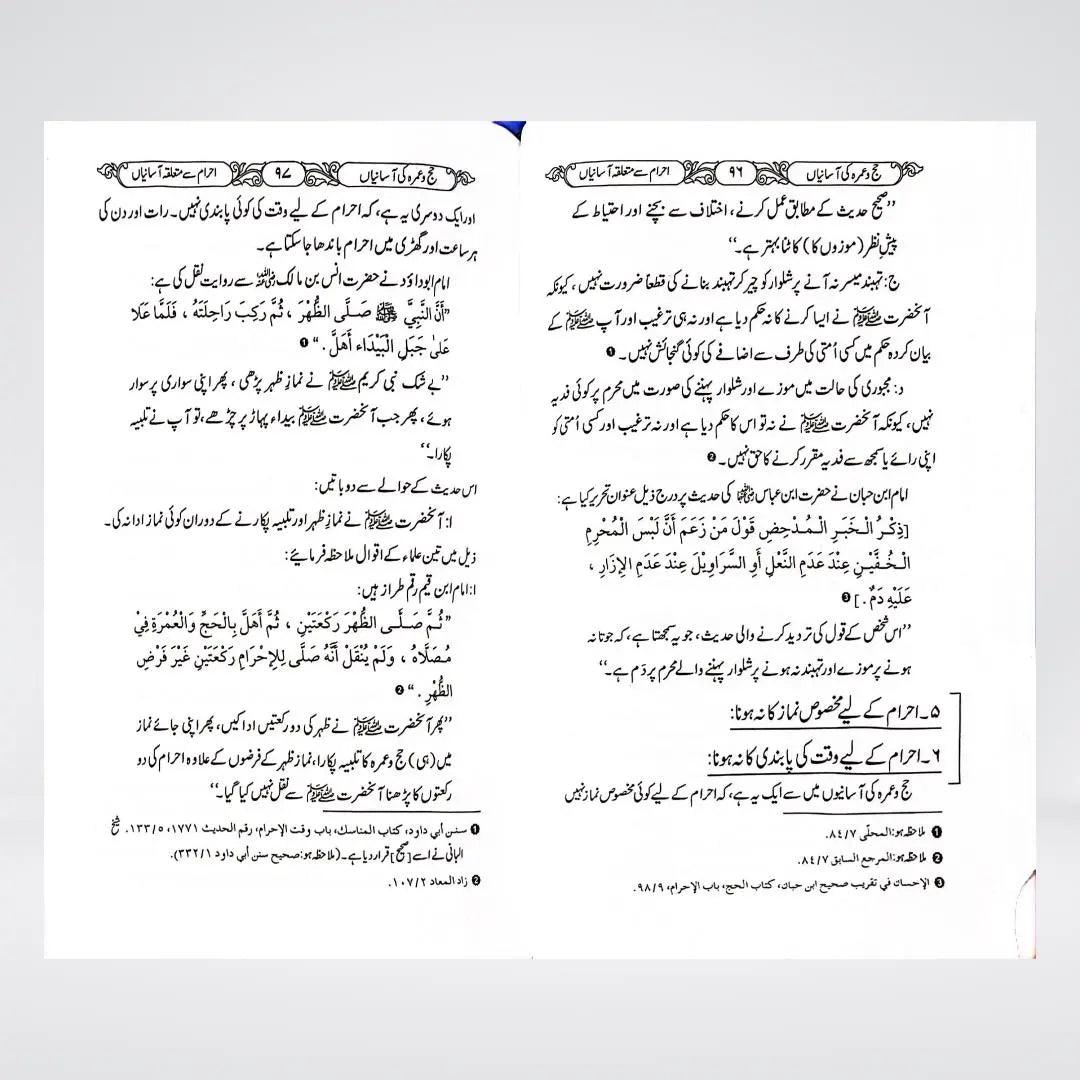 حج وعمرہ کی آسانیاں ۹۶ احرام سے متعلقہ آسانیاں
’’صحیح حدیث کے مطابق عمل کرنے، اختلاف سے بچنے اور احتیاط کے
پیشِ نظر (موزوں کا) کاٹنا بہتر ہے۔‘‘
ج: تہبند میسر نہ آنے پر شلوار کو چیر کر تہبند بنانے کی قطعاً ضرورت نہیں، کیونکہ
آنحضرت ﷺ نے ایسا کرنے کا نہ حکم دیا ہے اور نہ ہی ترغیب اور آپ ﷺ کے
بیان کردہ حکم میں کسی اُمتی کی طرف سے اضافے کی کوئی گنجائش نہیں۔ ❶
د: مجبوری کی حالت میں موزے اور شلوار پہننے کی صورت میں محرم پر کوئی فدیہ
نہیں، کیونکہ آنحضرت ﷺ نے نہ تو اس کا حکم دیا ہے اور نہ ترغیب اور کسی اُمتی کو
اپنی رائے یا سمجھ سے فدیہ مقرر کرنے کا حق نہیں۔ ❷
امام ابن حبان نے حضرت ابن عباس رضی اللہ عنہما کی حدیث پر درج ذیل عنوان تحریر کیا ہے:
[ذِكْرُ الْخَبَرِ الْمُدْحِضِ قَوْلَ مَنْ زَعَمَ أَنَّ لَبْسَ الْمُحْرِمِ
الْخُفَّيْنِ عِنْدَ عَدَمِ النَّعْلِ أَوِ السَّرَاوِيْلَ عِنْدَ عَدَمِ الإِزَارِ ،
عَلَيْهِ دَمٌ .] ❸
’’اس شخص کے قول کی تردید کرنے والی حدیث، جو یہ سمجھتا ہے، کہ جوتا نہ
ہونے پر موزے اور تہبند نہ ہونے پر شلوار پہننے والے محرم پر دَم ہے۔‘‘
۵۔ احرام کے لیے مخصوص نماز کا نہ ہونا:
۶۔ احرام کے لیے وقت کی پابندی کا نہ ہونا:
حج وعمرہ کی آسانیوں میں سے ایک یہ ہے، کہ احرام کے لیے کوئی مخصوص نماز نہیں
❶ ملاحظہ ہو: المحلّی ٨٤/٧.
❷ ملاحظہ ہو: المرجع السابق ٨٤/٧.
❸ الإحسان في تقريب صحيح ابن حبان، كتاب الحج، باب الإحرام، ٩٨/٩.
حج وعمرہ کی آسانیاں ۹۷ احرام سے متعلقہ آسانیاں
اور ایک دوسری یہ ہے، کہ احرام کے لیے وقت کی کوئی پابندی نہیں۔ رات اور دن کی
ہر ساعت اور گھڑی میں احرام باندھا جا سکتا ہے۔
امام ابوداؤد نے حضرت انس بن مالک رضی اللہ عنہ سے روایت نقل کی ہے:
”أَنَّ النَّبِيَّ ﷺ صَلَّى الظُّهْرَ ، ثُمَّ رَكِبَ رَاحِلَتَهُ ، فَلَمَّا عَلَا
عَلىٰ جَبَلِ الْبَيْدَاءِ أَهَلَّ . “ ❶
’’بے شک نبی کریم ﷺ نے نمازِ ظہر پڑھی، پھر اپنی سواری پر سوار
ہوئے، پھر جب آنحضرت ﷺ بیداء پہاڑ پر چڑھے، تو آپ نے تلبیہ
پکارا۔‘‘
اس حدیث کے حوالے سے دو باتیں:
ا: آنحضرت ﷺ نے نمازِ ظہر اور تلبیہ پکارنے کے دوران کوئی نماز ادا نہ کی۔
ذیل میں تین علماء کے اقوال ملاحظہ فرمائیے:
ا: امام ابن قیم رقم طراز ہیں:
”ثُمَّ صَلَّى الظُّهْرَ رَكْعَتَيْنِ ، ثُمَّ أَهَلَّ بِالْحَجِّ وَالْعُمْرَةِ فِيْ
مُصَلَّاهُ ، وَلَمْ يُنْقَلْ أَنَّهُ صَلَّى لِلإِحْرَامِ رَكْعَتَيْنِ غَيْرَ فَرْضِ
الظُّهْرِ . “ ❷
’’پھر آنحضرت ﷺ نے ظہر کی دو رکعتیں ادا کیں، پھر اپنی جائے نماز
میں (ہی) حج وعمرہ کا تلبیہ پکارا، نمازِ ظہر کے فرضوں کے علاوہ احرام کی دو
رکعتوں کا پڑھنا آنحضرت ﷺ سے نقل نہیں کیا گیا۔‘‘
❶ سنن أبي داود، كتاب المناسك، باب وقت الإحرام، رقم الحديث ١٧٧١، ١٣٣/٥. شیخ
البانی نے اسے [صحیح] قرار دیا ہے۔ (ملاحظہ ہو: صحيح سنن أبي داود ٣٣٢/١).
❷ زاد المعاد ١٠٧/٢.